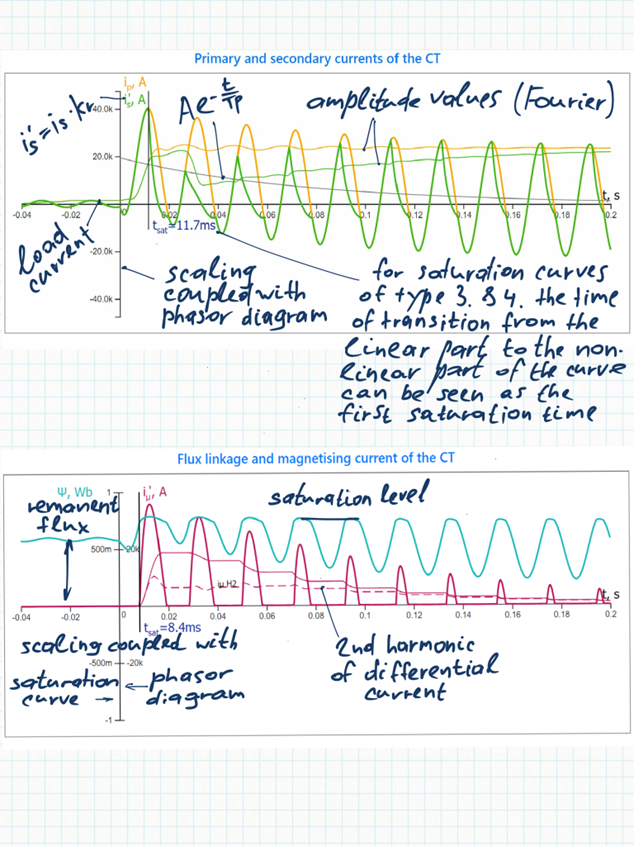 Primary and secondary currents of the CT
iₚ, A
i'ₛ, A
i'ₛ = iₛ · kᵣ
40.0k
Ae^(-t/Tp)
amplitude values (Fourier)
20.0k
t, s
-0.04
-0.02
0.02
0.04
0.06
0.08
0.1
0.12
0.14
0.16
0.18
0.2
t_sat=11.7ms
load
current
-20.0k
-40.0k
scaling
coupled with
phasor diagram
for saturation curves
of type 3. & 4. the time
of transition from the
linear part to the non-
linear part of the curve
can be seen as the
first saturation time
Flux linkage and magnetising current of the CT
Ψ, Wb
1
i'μ, A
remanent
flux
saturation level
500m
20k
iμ H2
t, s
-0.04
-0.02
0
0.02
0.04
0.06
0.08
0.1
0.12
0.14
0.16
0.18
0.2
t_sat=8.4ms
scaling coupled with
-500m
-20k
saturation ← phasor
curve → diagram
-1
2nd harmonic
of differential
current